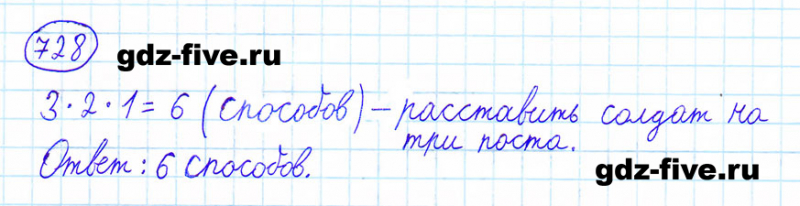 728
gdz-five.ru
3·2·1=6 (способов) – расставить солдат на
три поста.
Ответ: 6 способов.
gdz-five.ru